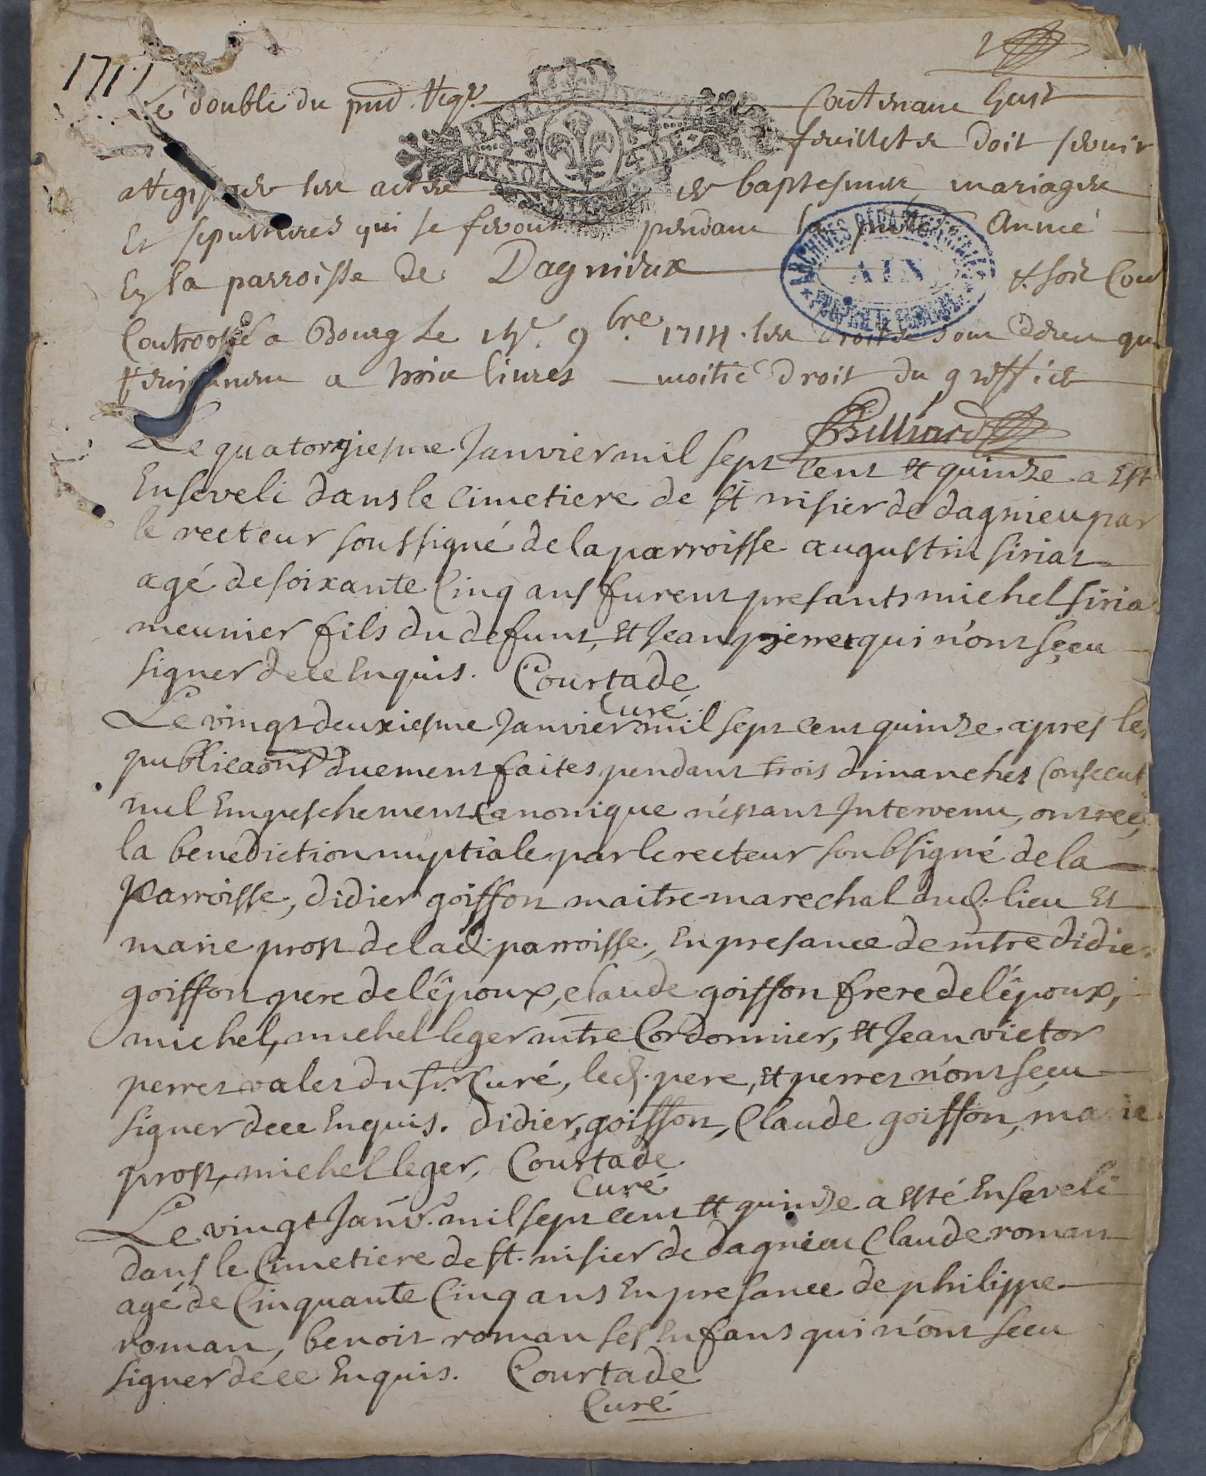 1715
Le double du pnt Regre Contenant huit
feuillets doit servir
a Registrer les actes de baptesmes mariages
Et sepultures qui se feront pendant la Année
En la parroisse de Dagnieux & soit
Controollé a Bourg Le 9bre 1714. les droits
a trois livres moitié droit du greffier
Billiard
Le quatorziesme Janvier mil sept cent et quinze a Est
Enseveli dans le cimetiere de st nisier de dagnieu par
le recteur soussigné de la parroisse augustin siriat
agé de soixante Cinq ans furent presants michel siria
meunier fils du defunt, et Jean pierret qui n'ont sçeu
signer de ce Enquis. Courtade
Curé
Le vingt deuxiesme Janvier mil sept cent quinze apres les
publicaons duement faites pendant trois dimanches Consecut
nul Empeschement Canonique n'estant Intervenu, ont reçeu
la benediction nuptiale par le recteur soubsigné de la
Parroisse, didier goiffon maitre marechal dud. lieu Et
marie prost de lad. parroisse, En presance de mtre didie
goiffon pere de l'époux, claude goiffon frere de l'époux,
michel, michel leger mtre Cordonnier, et Jean victor
perret valet du sr. Curé, led. pere, et perret n'ont sçeu
signer de ce Enquis. didier goiffon, Claude goiffon, marie
prost, michel leger, Courtade
Curé
Le vingt Janv. mil sept cent et quinze a esté Enseveli
dans le Cimetiere de st. nisier de dagnieu Claude roman
agé de Cinquante Cinq ans En presance de philippe
roman, benoit roman ses Enfans qui n'ont sceu
signer de ce Enquis. Courtade
Curé
ARCHIVES DEPARTEMENTALES
AIN